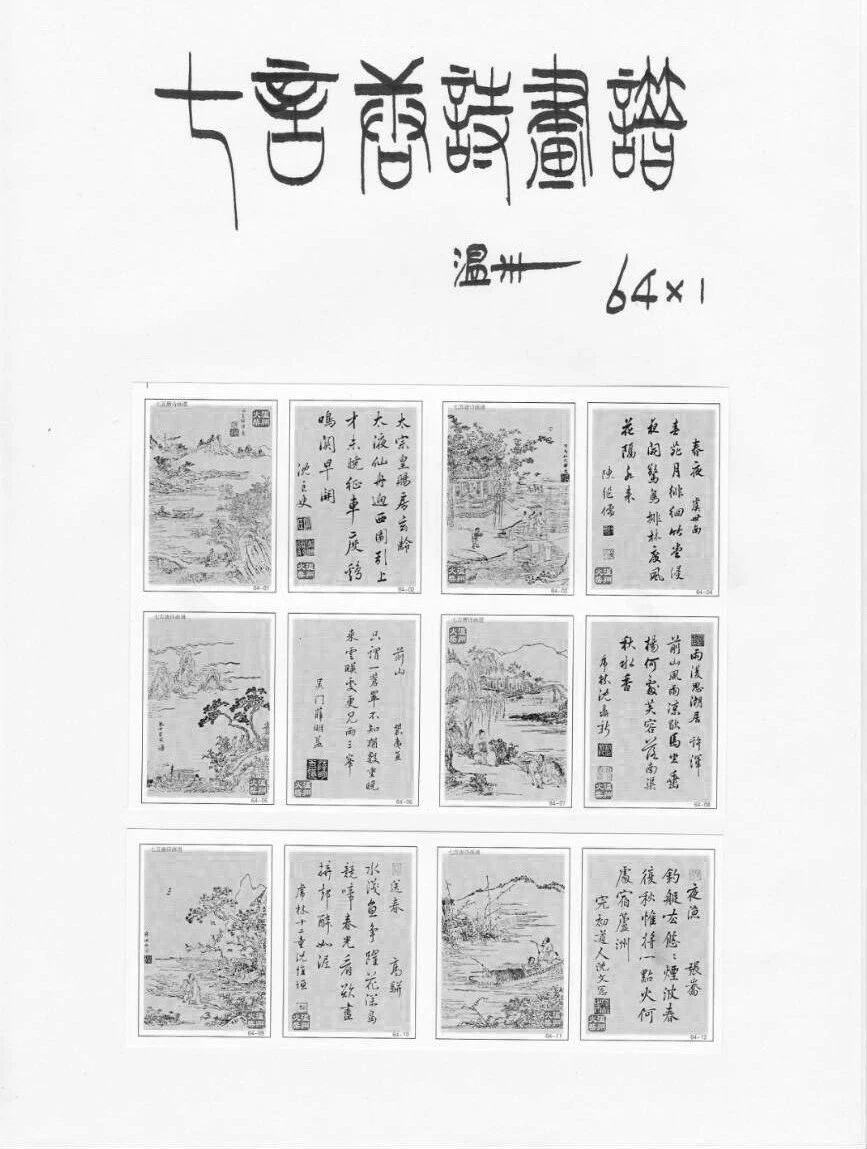 七言唐詩畫譜
温州
64×1
七言唐诗画谱
64-01
太宗皇賜房玄齡
太液仙舟迥西園引上
才未曉征車度鶏
鳴關早開
沈良史
64-02
七言唐诗画谱
64-03
春夜 虞世南
春苑月徘徊竹堂侵
夜開驚鳥排林度風
花隔水来
陳繼儒
64-04
七言唐诗画谱
64-05
前山 裴夷直
只謂一蒼翠不知猶數重晚
来雲映處更見兩三峯
吴門薛明益
64-06
七言唐诗画谱
64-07
雨後思湖居 許渾
前山風雨凉歇馬坐垂
楊何處芙蓉落南渠
秋水香
虎林沈鼎新
64-08
七言唐诗画谱
64-09
送春 高駢
水淺魚争躍花深鳥
競啼春光看欲盡
拚却醉如泥
虎林十二童沈維垣
64-10
七言唐诗画谱
64-11
夜漁 張喬
釣艇去悠悠煙波春
復秋惟將一點火何
處宿蘆洲
完初道人沈文憲
64-12